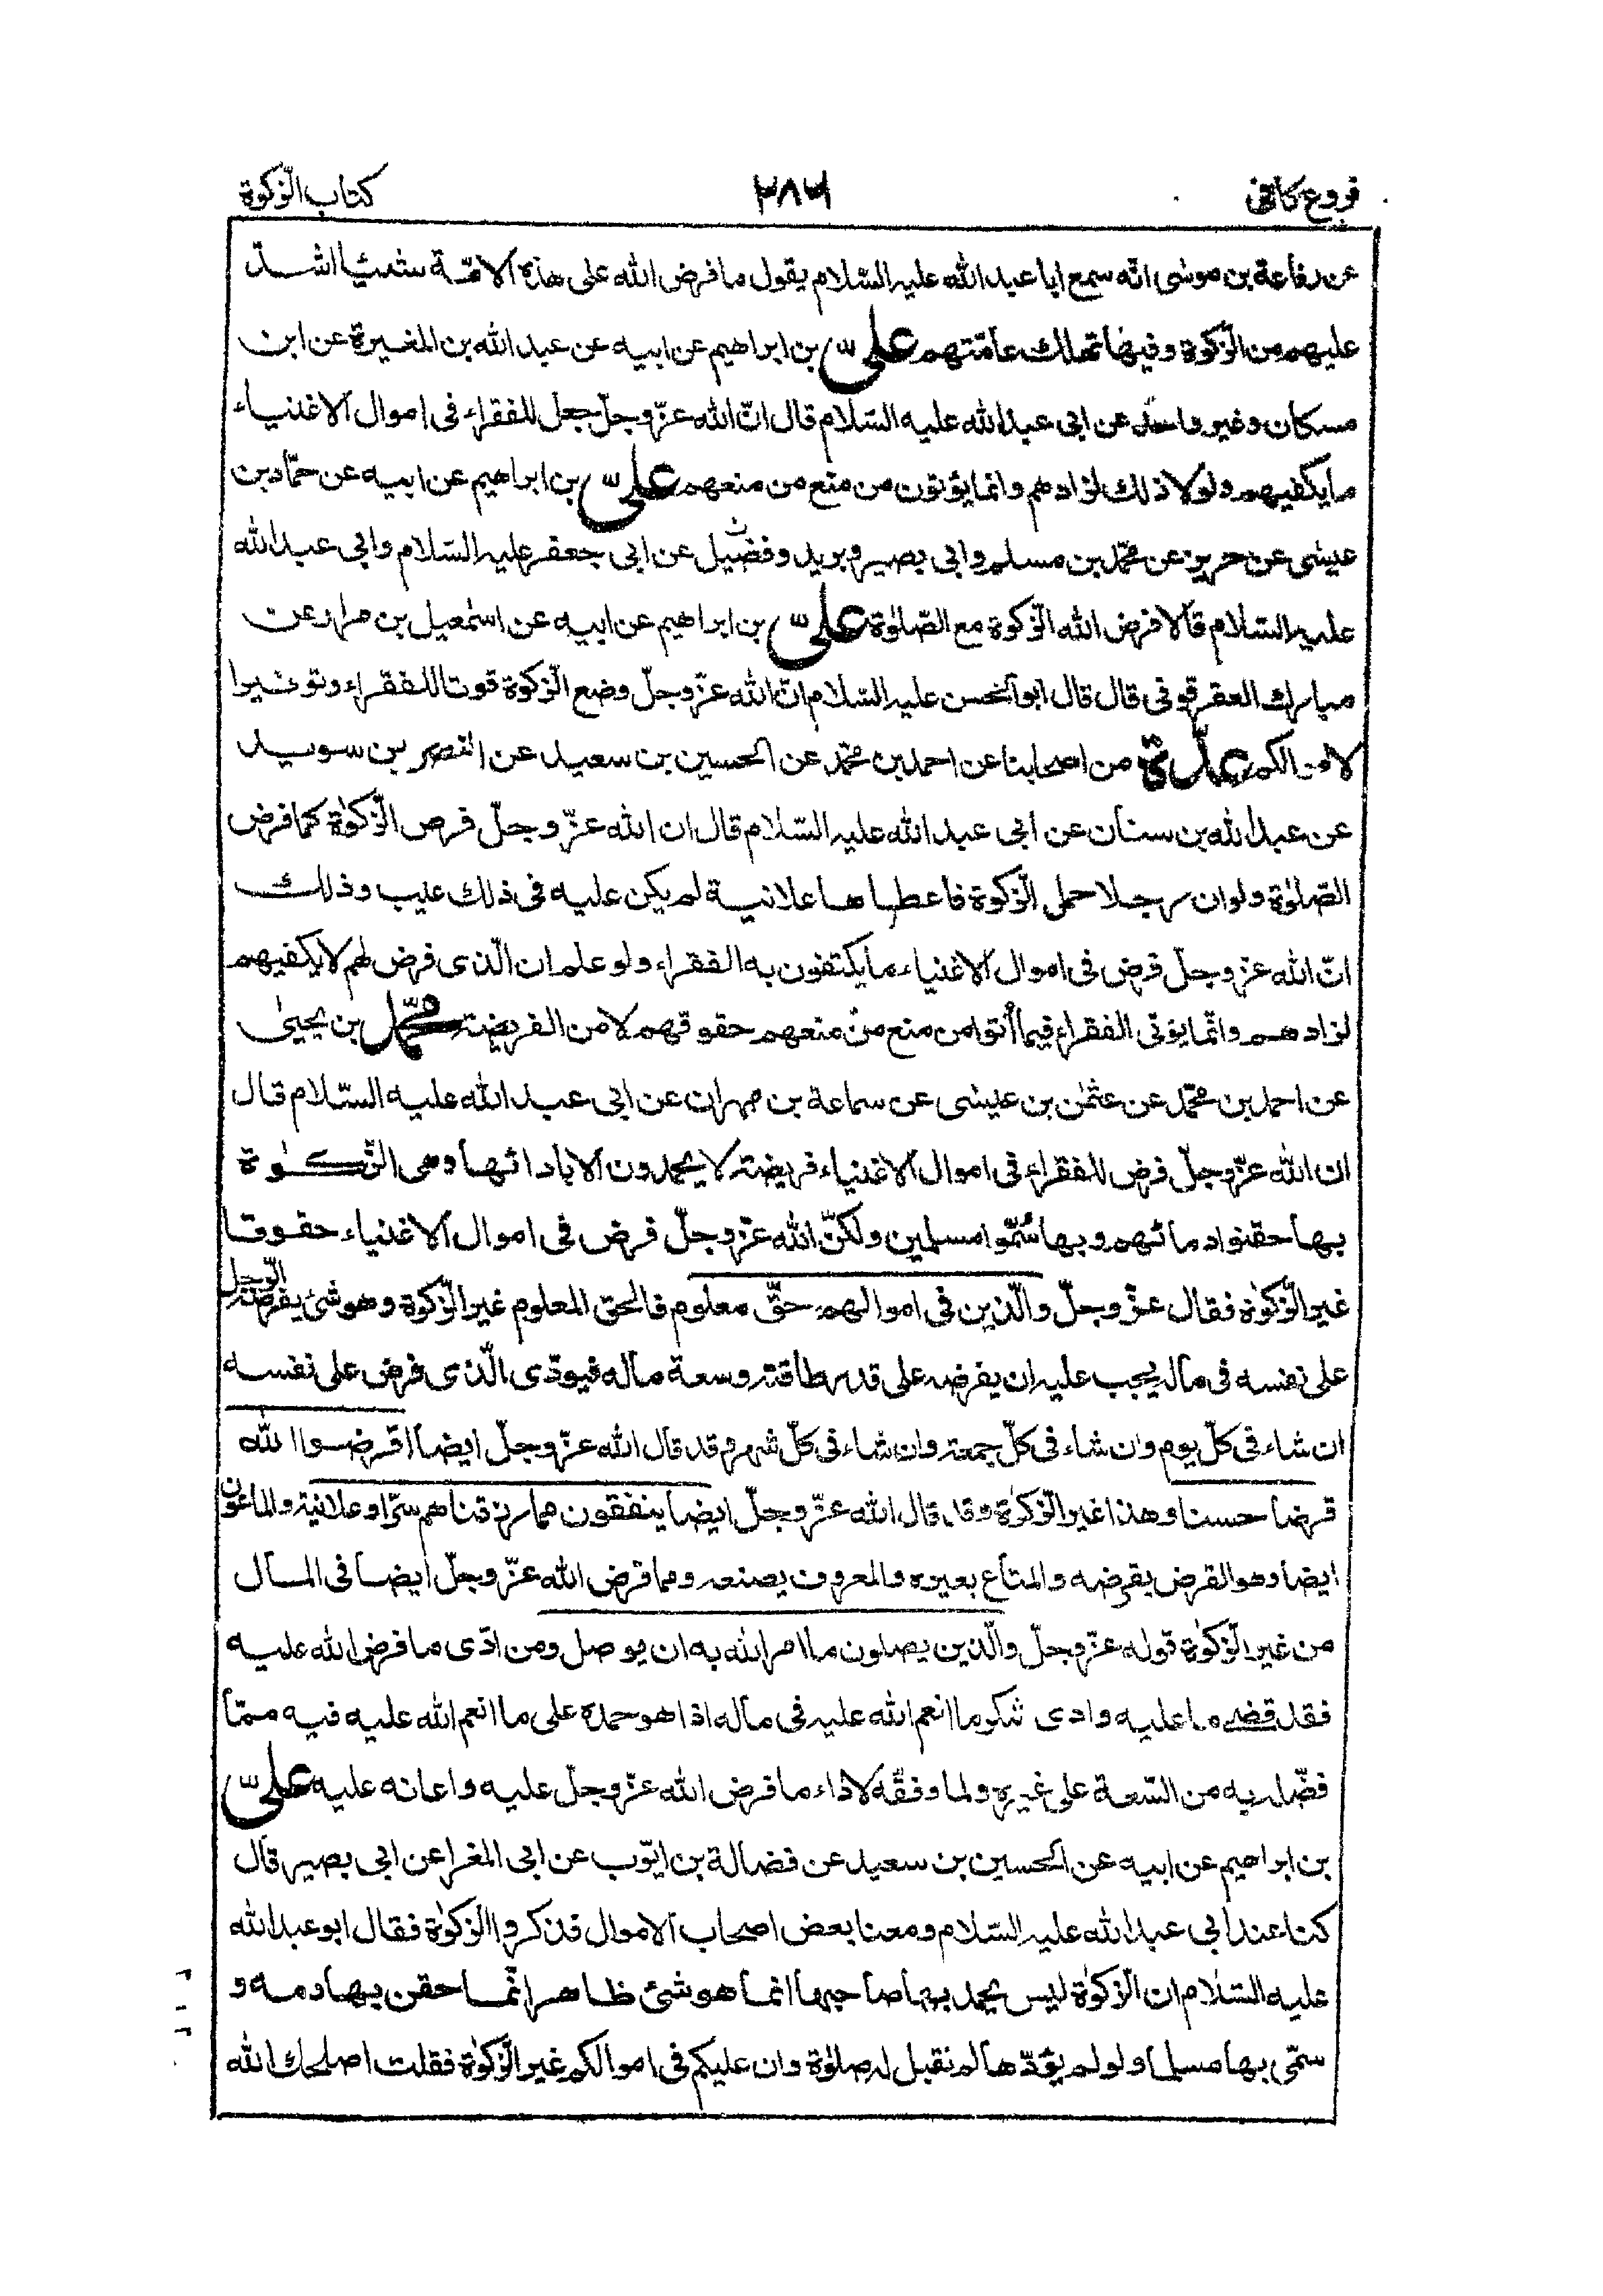 فروع كافى ٢٨٦ كتاب الزّكوة
عن رفاعة بن موسى انّه سمع ابا عبد الله عليه السّلام يقول ما فرض الله على هذه الامّة شيئا اشدّ
عليهم من الزّكوة وفيها تهلك عامّتهم علىّ بن ابراهيم عن ابيه عن عبد الله بن المغيرة عن ابن
مسكان وغير واحد عن ابى عبد الله عليه السّلام قال انّ الله عزّ وجلّ جعل للفقراء فى اموال الاغنياء
ما يكفيهم ولولا ذلك لزادهم وانما يؤتون من منع من منعهم علىّ بن ابراهيم عن ابيه عن حمّاد بن
عيسى عن حريز عن محمّد بن مسلم وابى بصير وبريد وفضيل عن ابى جعفر عليه السّلام وابى عبد الله
عليه السّلام قالا فرض الله الزّكوة مع الصّلوة علىّ بن ابراهيم عن ابيه عن اسمعيل بن مرار عن
مبارك العقرقوفى قال قال ابو الحسن عليه السّلام انّ الله عزّ وجلّ وضع الزّكوة قوتا للفقراء وتوفيرا
لاموالكم عدّة من اصحابنا عن احمد بن محمّد عن الحسين بن سعيد عن النضر بن سويد
عن عبد الله بن سنان عن ابى عبد الله عليه السّلام قال ان الله عزّ وجلّ فرض الزّكوة كما فرض
الصّلوة ولو ان رجلا حمل الزّكوة فاعطاها علانية لم يكن عليه فى ذلك عيب وذلك
انّ الله عزّ وجلّ فرض فى اموال الاغنياء ما يكتفون به الفقراء ولو علم ان الّذى فرض لهم لا يكفيهم
لزادهم وانّما يؤتى الفقراء فيما أتوا من منع من منعهم حقوقهم لا من الفريضة محمّد بن يحيى
عن احمد بن محمّد عن عثمن بن عيسى عن سماعة بن مهران عن ابى عبد الله عليه السّلام قال
ان الله عزّ وجلّ فرض للفقراء فى اموال الاغنياء فريضة لا يحمدون الا بادائها وهى الزّكوة
بها حقنوا دمائهم وبها سُمّوا مسلمين ولكنّ الله عزّ وجلّ فرض فى اموال الاغنياء حقوقا
غير الزّكوة فقال عزّ وجلّ والّذين فى اموالهم حقّ معلوم فالحق المعلوم غير الزّكوة وهو شئ يفرضه الرّجل
على نفسه فى ماله يجب عليه ان يفرضه على قدر طاقته وسعة ماله فيودّى الّذى فرض على نفسه
ان شاء فى كلّ يوم وان شاء فى كلّ جمعة وان شاء فى كلّ شهر وقد قال الله عزّ وجلّ ايضا اقرضوا الله
قرضا حسنا وهذا غير الزّكوة وقد قال الله عزّ وجلّ ايضا ينفقون مما رزقناهم سرّا وعلانية والماعون
ايضا وهو القرض يقرضه والمتاع يعيره والمعروف يصنعه ومما فرض الله عزّ وجلّ ايضا فى المال
من غير الزّكوة قوله عزّ وجلّ والّذين يصلون ما امر الله به ان يوصل ومن ادّى ما فرض الله عليه
فقد قضى ما عليه وادى شكر ما انعم الله عليه فى ماله اذا هو حمده على ما انعم الله عليه فيه ممّا
فضّله به من السّعة على غيره ولما وفقّه لاداء ما فرض الله عزّ وجلّ عليه واعانه عليه علىّ
بن ابراهيم عن ابيه عن الحسين بن سعيد عن فضالة بن ايّوب عن ابى المغرا عن ابى بصير قال
كنا عند ابى عبد الله عليه السّلام ومعنا بعض اصحاب الاموال فذكروا الزكوة فقال ابو عبد الله
عليه السّلام ان الزّكوة ليس يحمد بها صاحبها انما هو شئ ظاهر انّما حقن بها دمه و
سمّى بها مسلما ولو لم يؤدّها لم تقبل له صلوة وان عليكم فى اموالكم غير الزّكوة فقلت اصلحك الله